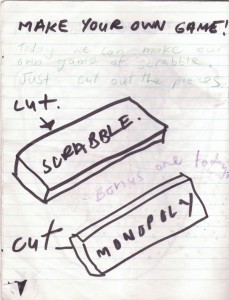 MAKE YOUR OWN GAME!
Today we can make our
own game of scrabble.
Just cut out the pieces
cut.
SCRABBLE.
Bonus one today
cut
MONOPOLY